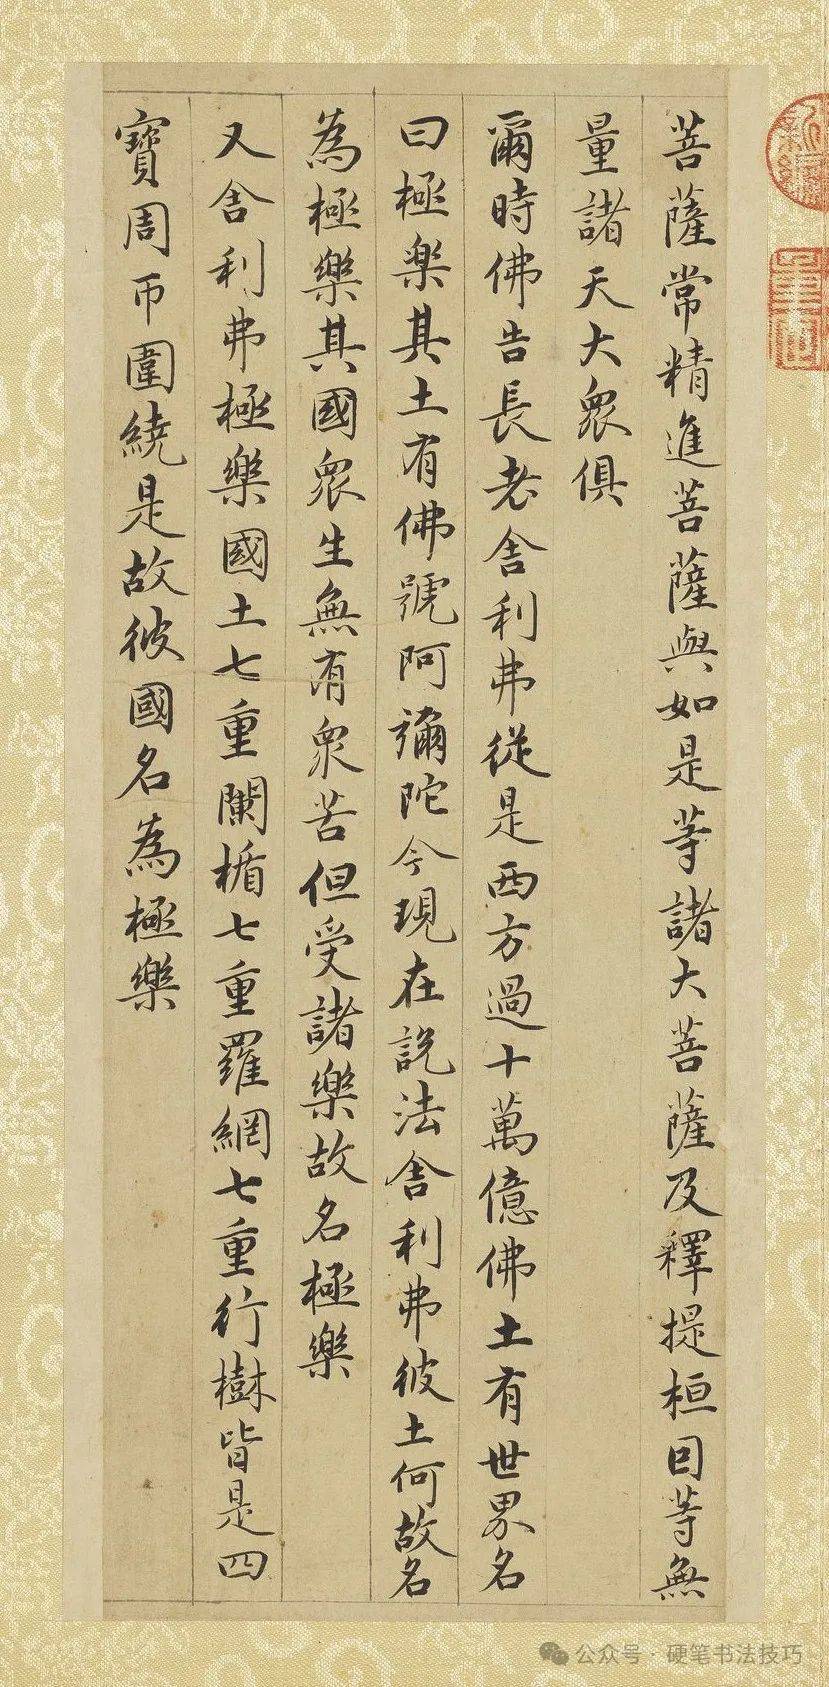 菩薩常精進菩薩與如是等諸大菩薩及釋提桓因等無
量諸天大眾俱
爾時佛告長老舍利弗從是西方過十萬億佛土有世界名
曰極樂其土有佛號阿彌陀今現在說法舍利弗彼土何故名
為極樂其國眾生無有眾苦但受諸樂故名極樂
又舍利弗極樂國土七重闌楯七重羅網七重行樹皆是四
寶周帀圍繞是故彼國名為極樂
公众号·硬笔书法技巧